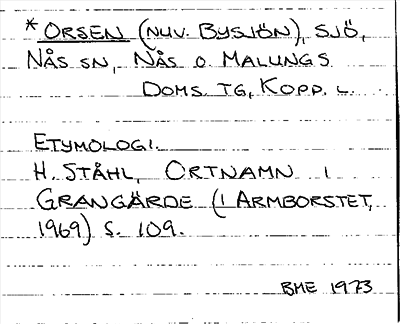 * ORSEN (NUV. BYSJÖN), SJÖ,
NÅS SN, NÅS O. MALUNGS
DOMS. TG, KOPP. L.
ETYMOLOGI.
H. STÅHL, ORTNAMN I
GRANGÄRDE (I ARMBORSTET,
1969) S. 109.
BME 1973